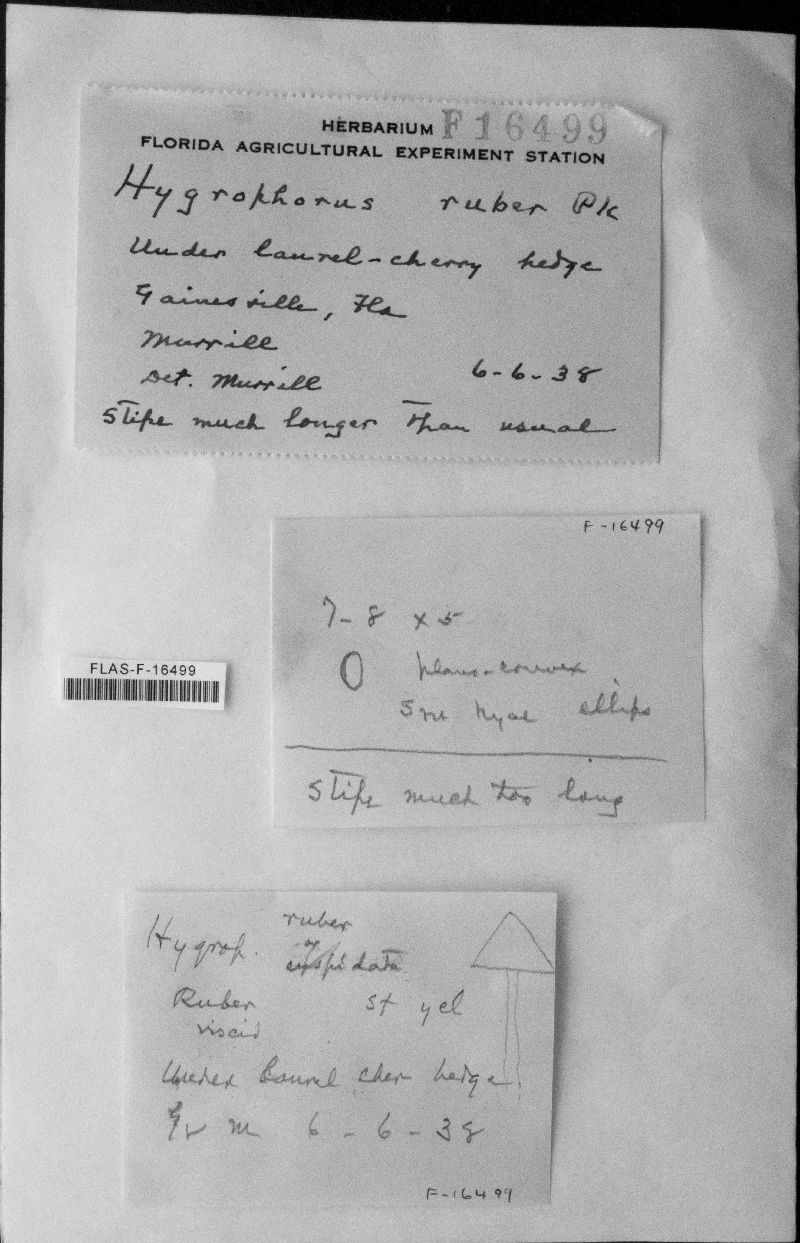 HERBARIUM F16499
FLORIDA AGRICULTURAL EXPERIMENT STATION
Hygrophorus ruber Pk
Under laurel-cherry hedge
Gainesville, Fla
Murrill
Det. Murrill 6-6-38
Stipe much longer than usual
F-16499
7-8 x 5
plano-convex
sm hyal ellips
Stipe much too long
FLAS-F-16499
Hygrop. ruber
or
cuspidata
Ruber st yel
viscid
Under laurel cher hedge
M 6-6-38
F-16499